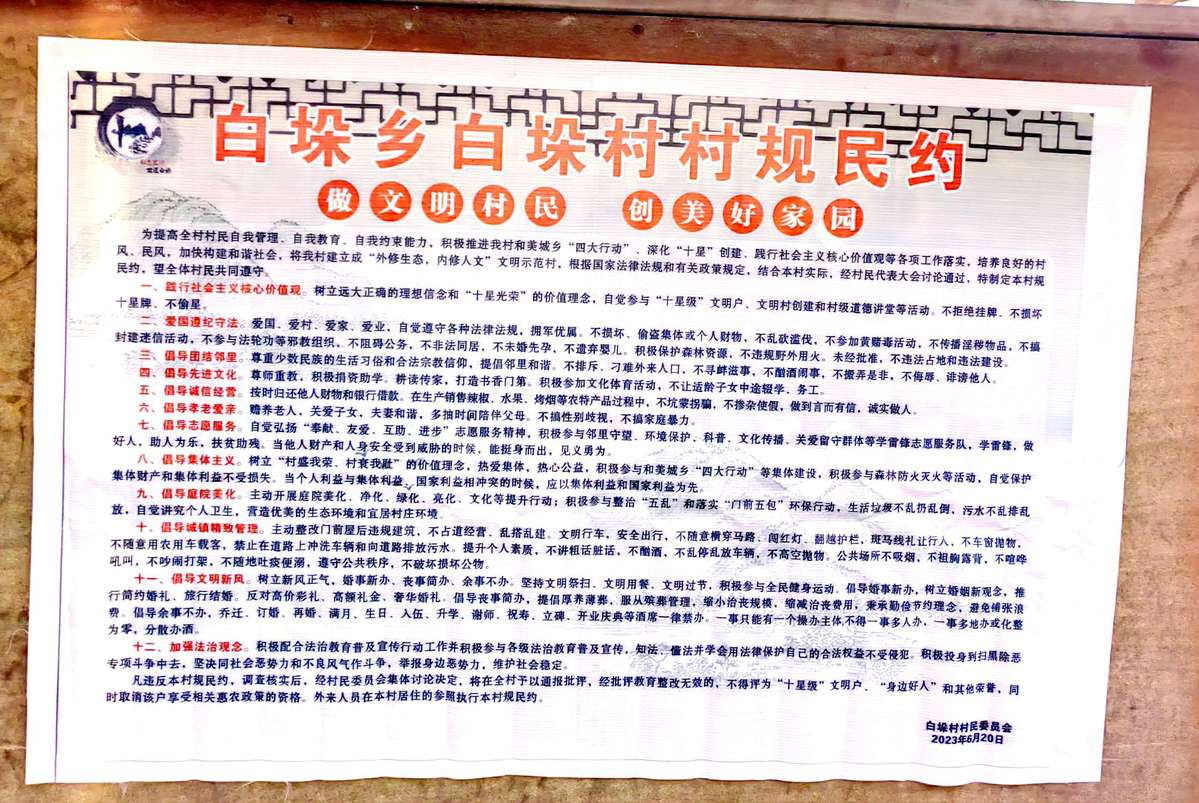 白垛乡白垛村村规民约
做文明村民 创美好家园
为提高全村村民自我管理、自我教育、自我约束能力，积极推进我村和美城乡“四大行动”、深化“十星”创建、践行社会主义核心价值观等各项工作落实，培养良好的村
风、民风，加快构建和谐社会，将我村建立成“外修生态，内修人文”文明示范村，根据国家法律法规和有关政策规定，结合本村实际，经村民代表大会讨论通过，特制定本村规
民约，望全体村民共同遵守。
一、践行社会主义核心价值观。树立远大正确的理想信念和“十星光荣”的价值理念，自觉参与“十星级”文明户、文明村创建和村级道德讲堂等活动。不拒绝挂牌、不损坏
十星牌、不偷星。
二、爱国遵纪守法。爱国、爱村、爱家、爱业，自觉遵守各种法律法规，拥军优属。不损坏、偷盗集体或个人财物，不乱砍滥伐，不参加黄赌毒活动，不传播淫秽物品，不搞
封建迷信活动，不参与法轮功等邪教组织，不阻碍公务，不非法同居，不未婚先孕，不遗弃婴儿。积极保护森林资源，不违规野外用火。未经批准，不违法占地和违法建设。
三、倡导团结邻里。尊重少数民族的生活习俗和合法宗教信仰，提倡邻里和谐。不排斥、刁难外来人口，不寻衅滋事，不酗酒闹事，不搬弄是非，不侮辱、诽谤他人。
四、倡导先进文化。尊师重教，积极捐资助学。耕读传家，打造书香门第。积极参加文化体育活动，不让适龄子女中途辍学、务工。
五、倡导诚信经营。按时归还他人财物和银行借款。在生产销售辣椒、水果、烤烟等农特产品过程中，不坑蒙拐骗，不掺杂使假，做到言而有信，诚实做人。
六、倡导孝老爱亲。赡养老人，关爱子女，夫妻和谐，多抽时间陪伴父母。不搞性别歧视，不搞家庭暴力。
七、倡导志愿服务。自觉弘扬“奉献、友爱、互助、进步”志愿服务精神，积极参与邻里守望、环境保护、科普、文化传播、关爱留守群体等学雷锋志愿服务队，学雷锋，做
好人，助人为乐，扶贫助残。当他人财产和人身安全受到威胁的时候，能挺身而出，见义勇为。
八、倡导集体主义。树立“村盛我荣、村衰我耻”的价值理念，热爱集体，热心公益，积极参与和美城乡“四大行动”等集体建设，积极参与森林防火灭火等活动，自觉保护
集体财产和集体利益不受损失。当个人利益与集体利益、国家利益相冲突的时候，应以集体利益和国家利益为先。
九、倡导庭院美化。主动开展庭院美化、净化、绿化、亮化、文化等提升行动；积极参与整治“五乱”和落实“门前五包”环保行动，生活垃圾不乱扔乱倒，污水不乱排乱
放，自觉讲究个人卫生，营造优美的生态环境和宜居村庄环境。
十、倡导城镇精致管理。主动整改门前屋后违规建筑，不占道经营、乱搭乱建。文明行车，安全出行，不随意横穿马路、闯红灯、翻越护栏，斑马线礼让行人，不车窗抛物，
不随意用农用车载客，禁止在道路上冲洗车辆和向道路排放污水。提升个人素质，不讲粗话脏话，不酗酒，不乱停乱放车辆，不高空抛物。公共场所不吸烟，不袒胸露背，不喧哗
吼叫，不吵闹打架，不随地吐痰便溺，遵守公共秩序，不破坏损坏公物。
十一、倡导文明新风。树立新风正气，婚事新办、丧事简办、余事不办。坚持文明祭扫、文明用餐、文明过节，积极参与全民健身运动。倡导婚事新办，树立婚姻新观念，推
行简约婚礼、旅行结婚。反对高价彩礼、高额礼金、奢华婚礼。倡导丧事简办，提倡厚养薄葬，服从殡葬管理，缩小治丧规模，缩减治丧费用，秉承勤俭节约理念，避免铺张浪
费。倡导余事不办，乔迁、订婚、再婚、满月、生日、入伍、升学、谢师、祝寿、立碑、开业庆典等酒席一律禁办。一事只能有一个操办主体不得一事多人办，一事多地办或化整
为零，分散办酒。
十二、加强法治观念。积极配合法治教育普及宣传行动工作并积极参与各级法治教育普及宣传，知法、懂法并学会用法律保护自己的合法权益不受侵犯。积极投身到扫黑除恶
专项斗争中去，坚决同社会恶势力和不良风气作斗争，举报身边恶势力，维护社会稳定。
凡违反本村规民约，调查核实后，经村民委员会集体讨论决定，将在全村予以通报批评，经批评教育整改无效的，不得评为“十星级”文明户、“身边好人”和其他荣誉，同
时取消该户享受相关惠农政策的资格。外来人员在本村居住的参照执行本村规民约。
白垛村村民委员会
2023年6月20日